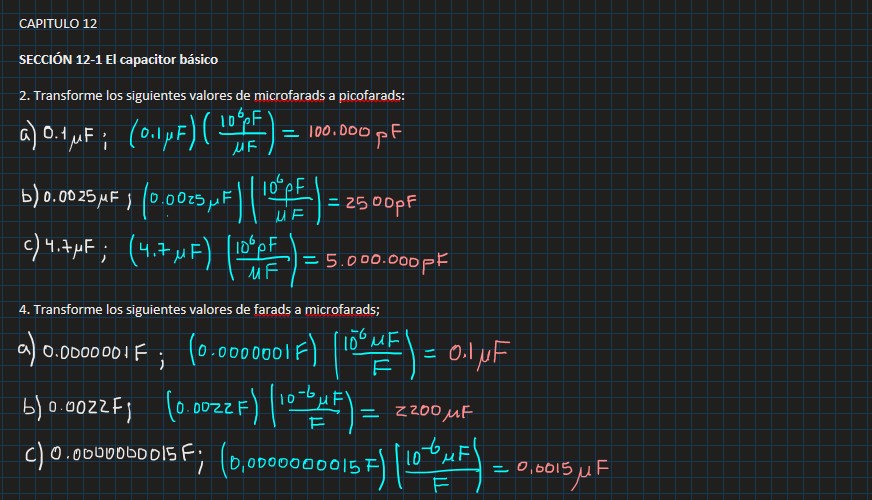 CAPITULO 12
SECCIÓN 12-1 El capacitor básico
2. Transforme los siguientes valores de microfarads a picofarads:
a) 0.1 μF ; (0.1 μF) (10⁶pF / μF) = 100.000 pF
b) 0.0025 μF ; (0.0025 μF) (10⁶pF / μF) = 2500pF
c) 4.7μF ; (4.7 μF) (10⁶pF / μF) = 5.000.000pF
4. Transforme los siguientes valores de farads a microfarads;
a) 0.0000001F ; (0.0000001F) (10⁻⁶ μF / F) = 0.1μF
b) 0.0022F; (0.0022F) (10⁻⁶ μF / F) = 2200 μF
c) 0.0000000015F; (0,0000000015F) (10⁻⁶ μF / F) = 0,0015 μF